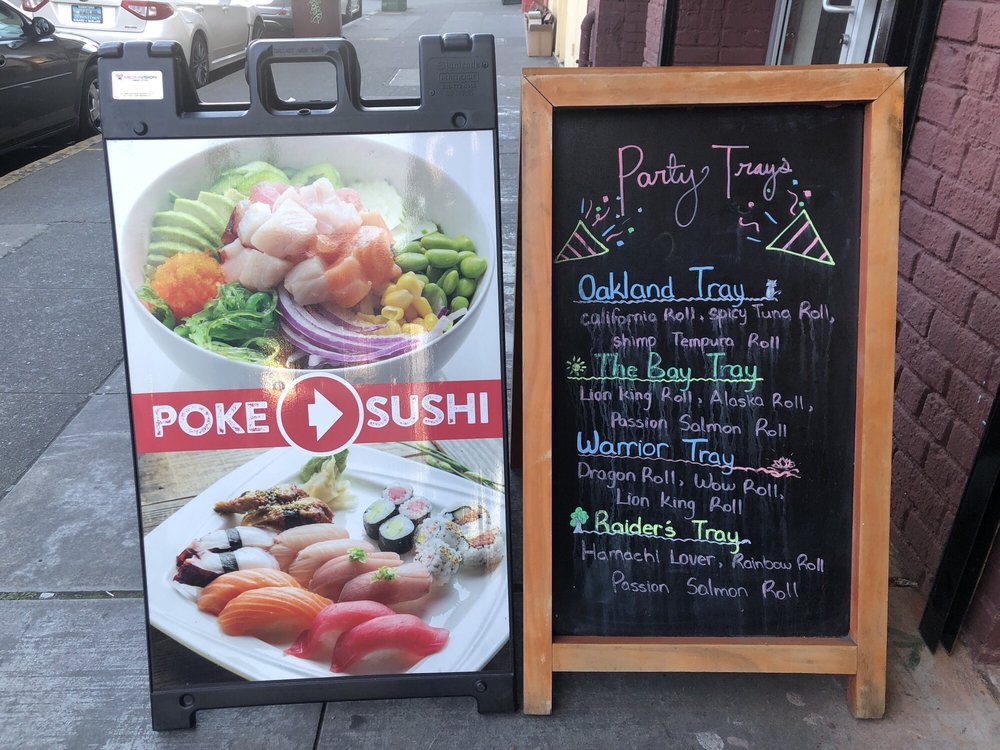 POKE SUSHI
Party Trays
Oakland Tray
california Roll, spicy Tuna Roll,
shimp Tempura Roll
The Bay Tray
Lion King Roll, Alaska Roll,
Passion Salmon Roll
Warrior Tray
Dragon Roll, Wow Roll,
Lion King Roll
Raider's Tray
Hamachi Lover, Rainbow Roll
Passion Salmon Roll